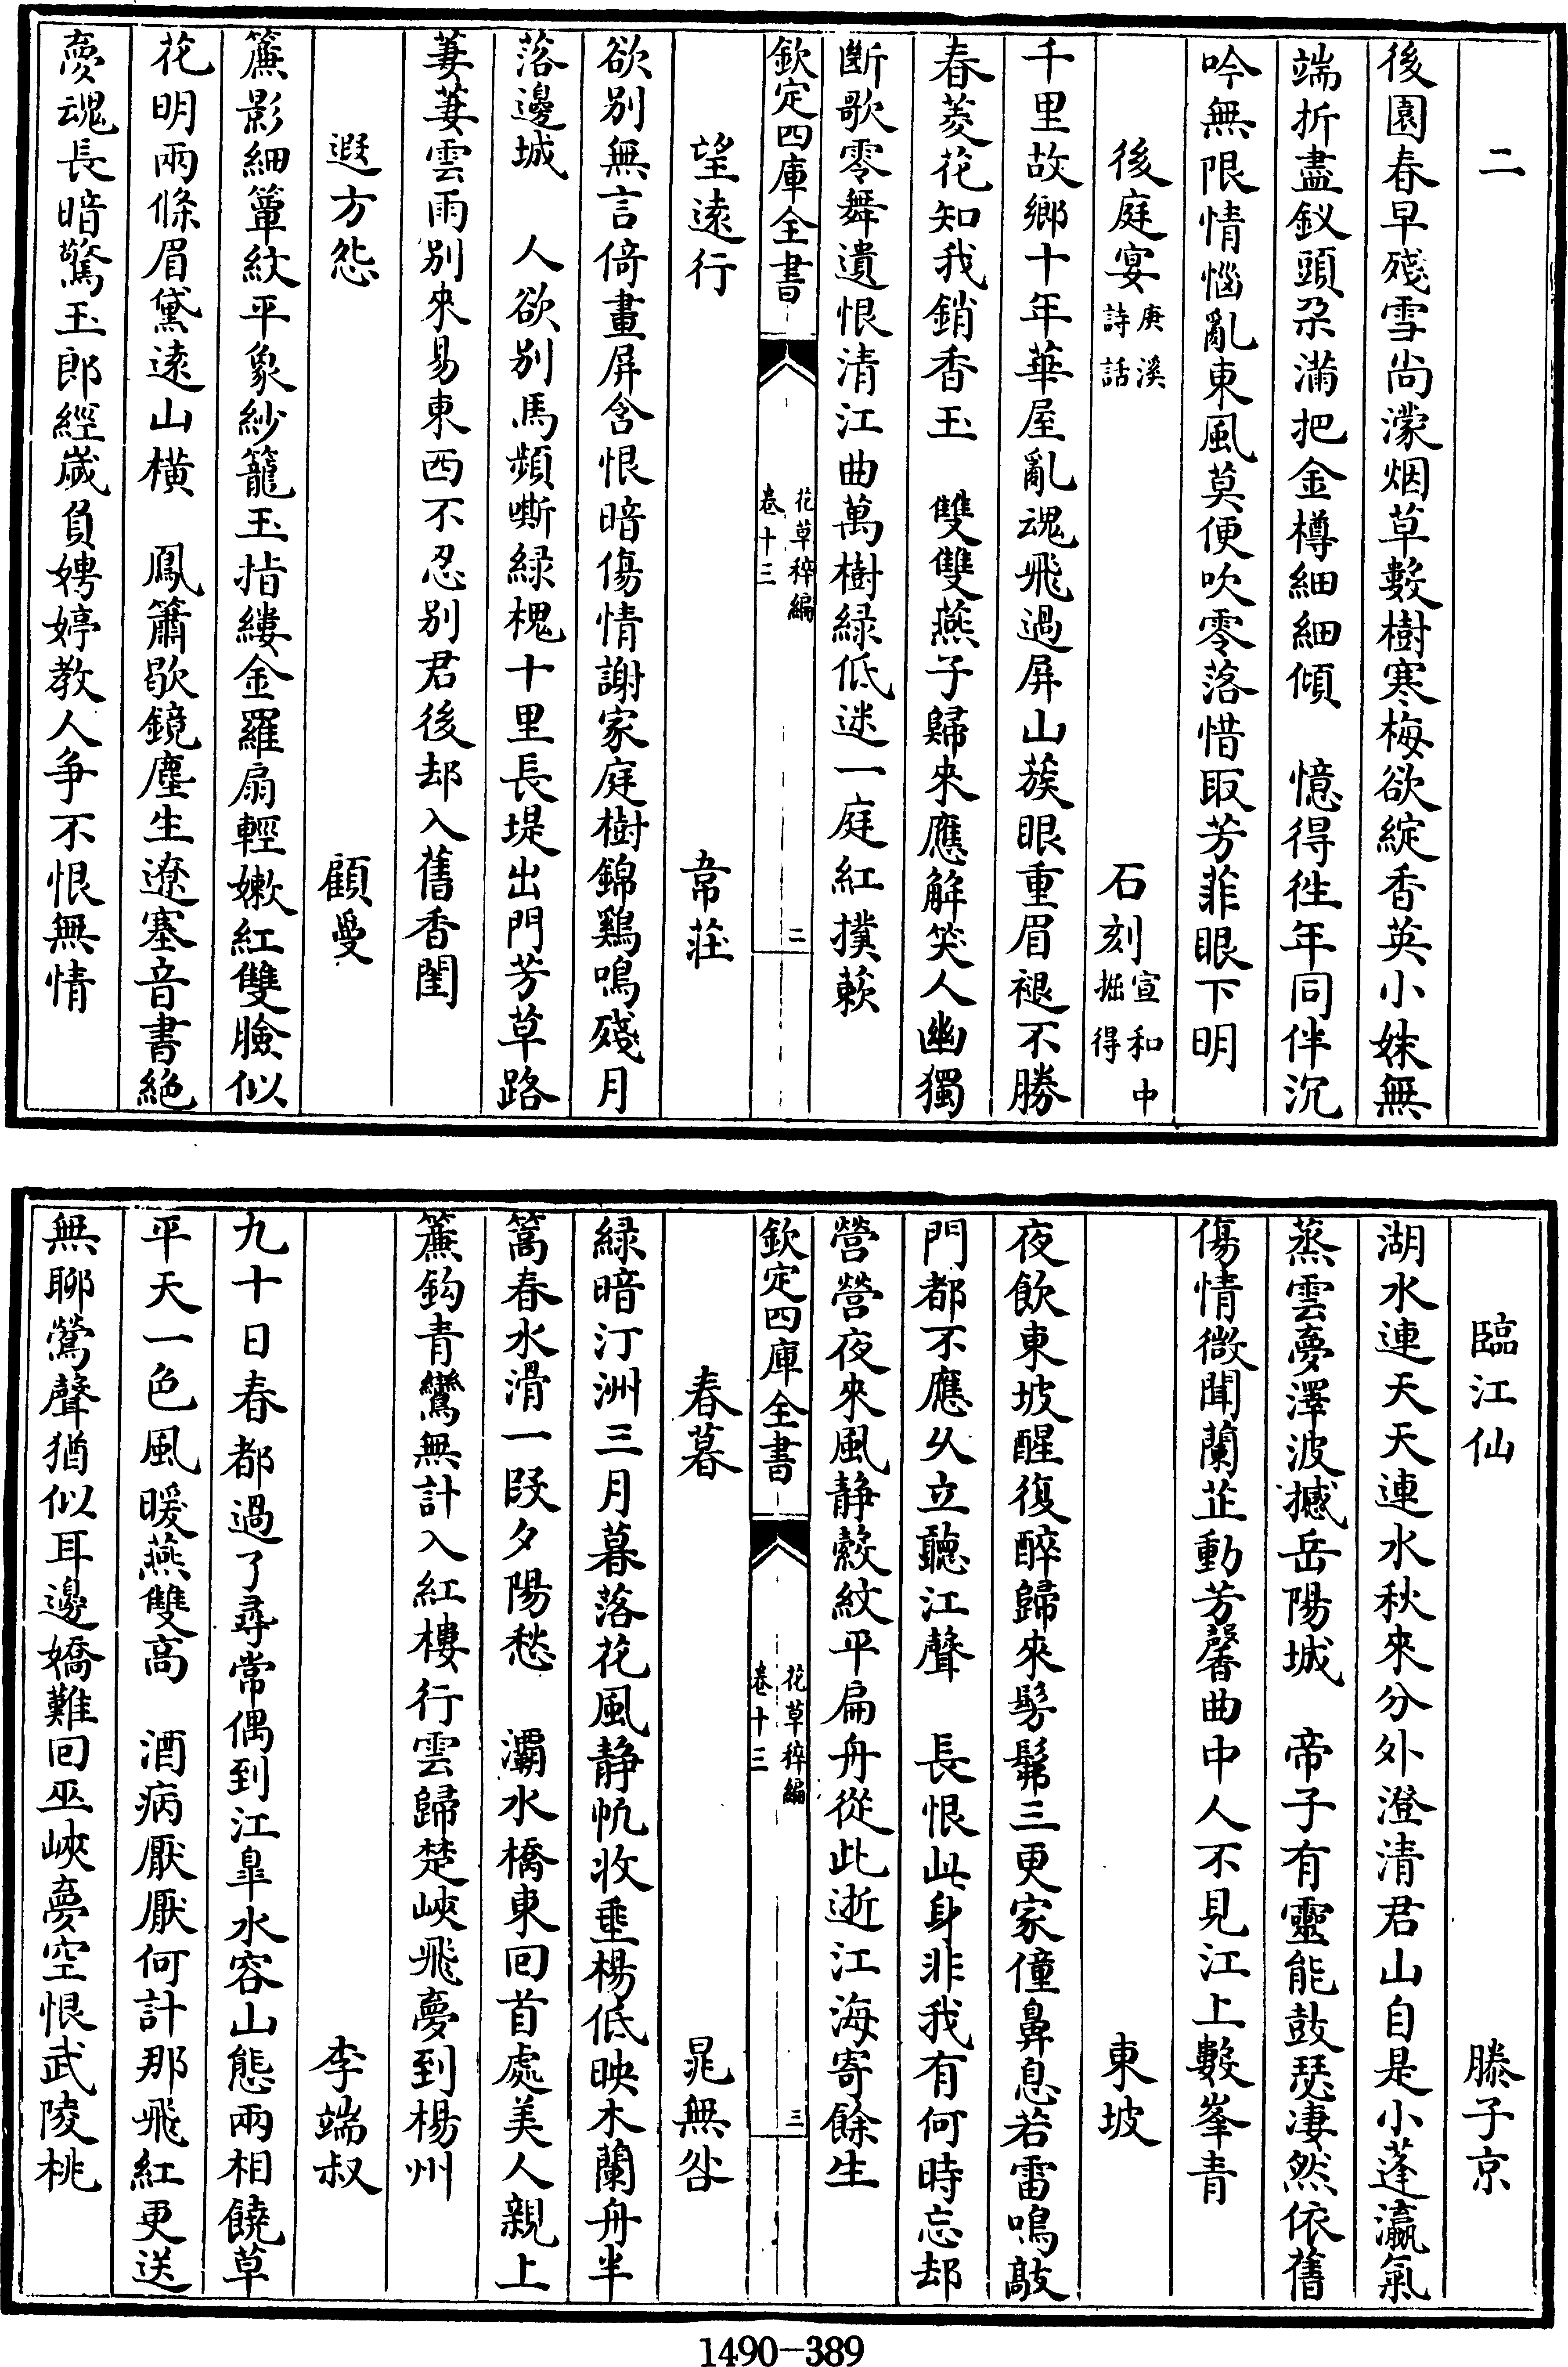 二
後園春早殘雪尚濛烟草數樹寒梅欲綻香英小妹無
端折盡釵頭朵滿把金樽細細傾　憶得徃年同伴沉
吟無限情惱亂東風莫便吹零落惜取芳菲眼下明
後庭宴庚溪詩話　石刻宣和中掘得
千里故鄉十年華屋亂魂飛過屏山蔟眼重眉褪不勝
春菱花知我銷香玉　雙雙燕子歸來應解笑人幽獨
斷歌零舞遺恨清江曲萬樹緑低迷一庭紅撲蔌
欽定四庫全書　花草稡編卷十三　二
望逺行　韋莊
欲別無言倚畫屏含恨暗傷情謝家庭樹錦鷄鳴殘月
落邊城　人欲別馬頻嘶緑槐十里長堤出門芳草路
萋萋雲雨別來易東西不忍別君後却入舊香閨
遐方怨　顧敻
簾影細簟紋平象紗籠玉指縷金羅扇輕嫩紅雙臉似
花明兩條眉黛逺山横　鳳簫歇鏡塵生遼塞音書絶
夢魂長暗驚玉郎經歲負娉婷教人争不恨無情
臨江仙　滕子京
湖水連天天連水秋來分外澄清君山自是小蓬瀛氣
蒸雲夢澤波撼岳陽城　帝子有靈能鼓瑟凄然依舊
傷情微聞蘭芷動芳馨曲中人不見江上數峯青
東坡
夜飲東坡醒復醉歸來髣髴三更家僮鼻息若雷鳴敲
門都不應乆立聽江聲　長恨此身非我有何時忘却
營營夜來風静縠紋平扁舟從此逝江海寄餘生
欽定四庫全書　花草稡編卷十三　三
春暮　晁無咎
緑暗汀洲三月暮落花風静帆收垂楊低映木蘭舟半
篙春水滑一段夕陽愁　灞水橋東回首處美人親上
簾鈎青鸞無計入紅樓行雲歸楚峽飛夢到楊州
李端叔
九十日春都過了尋常偶到江臯水容山態兩相饒草
平天一色風暖燕雙高　酒病厭厭何計那飛紅更送
無聊鶯聲猶似耳邊嬌難回巫峽夢空恨武陵桃
1490-389